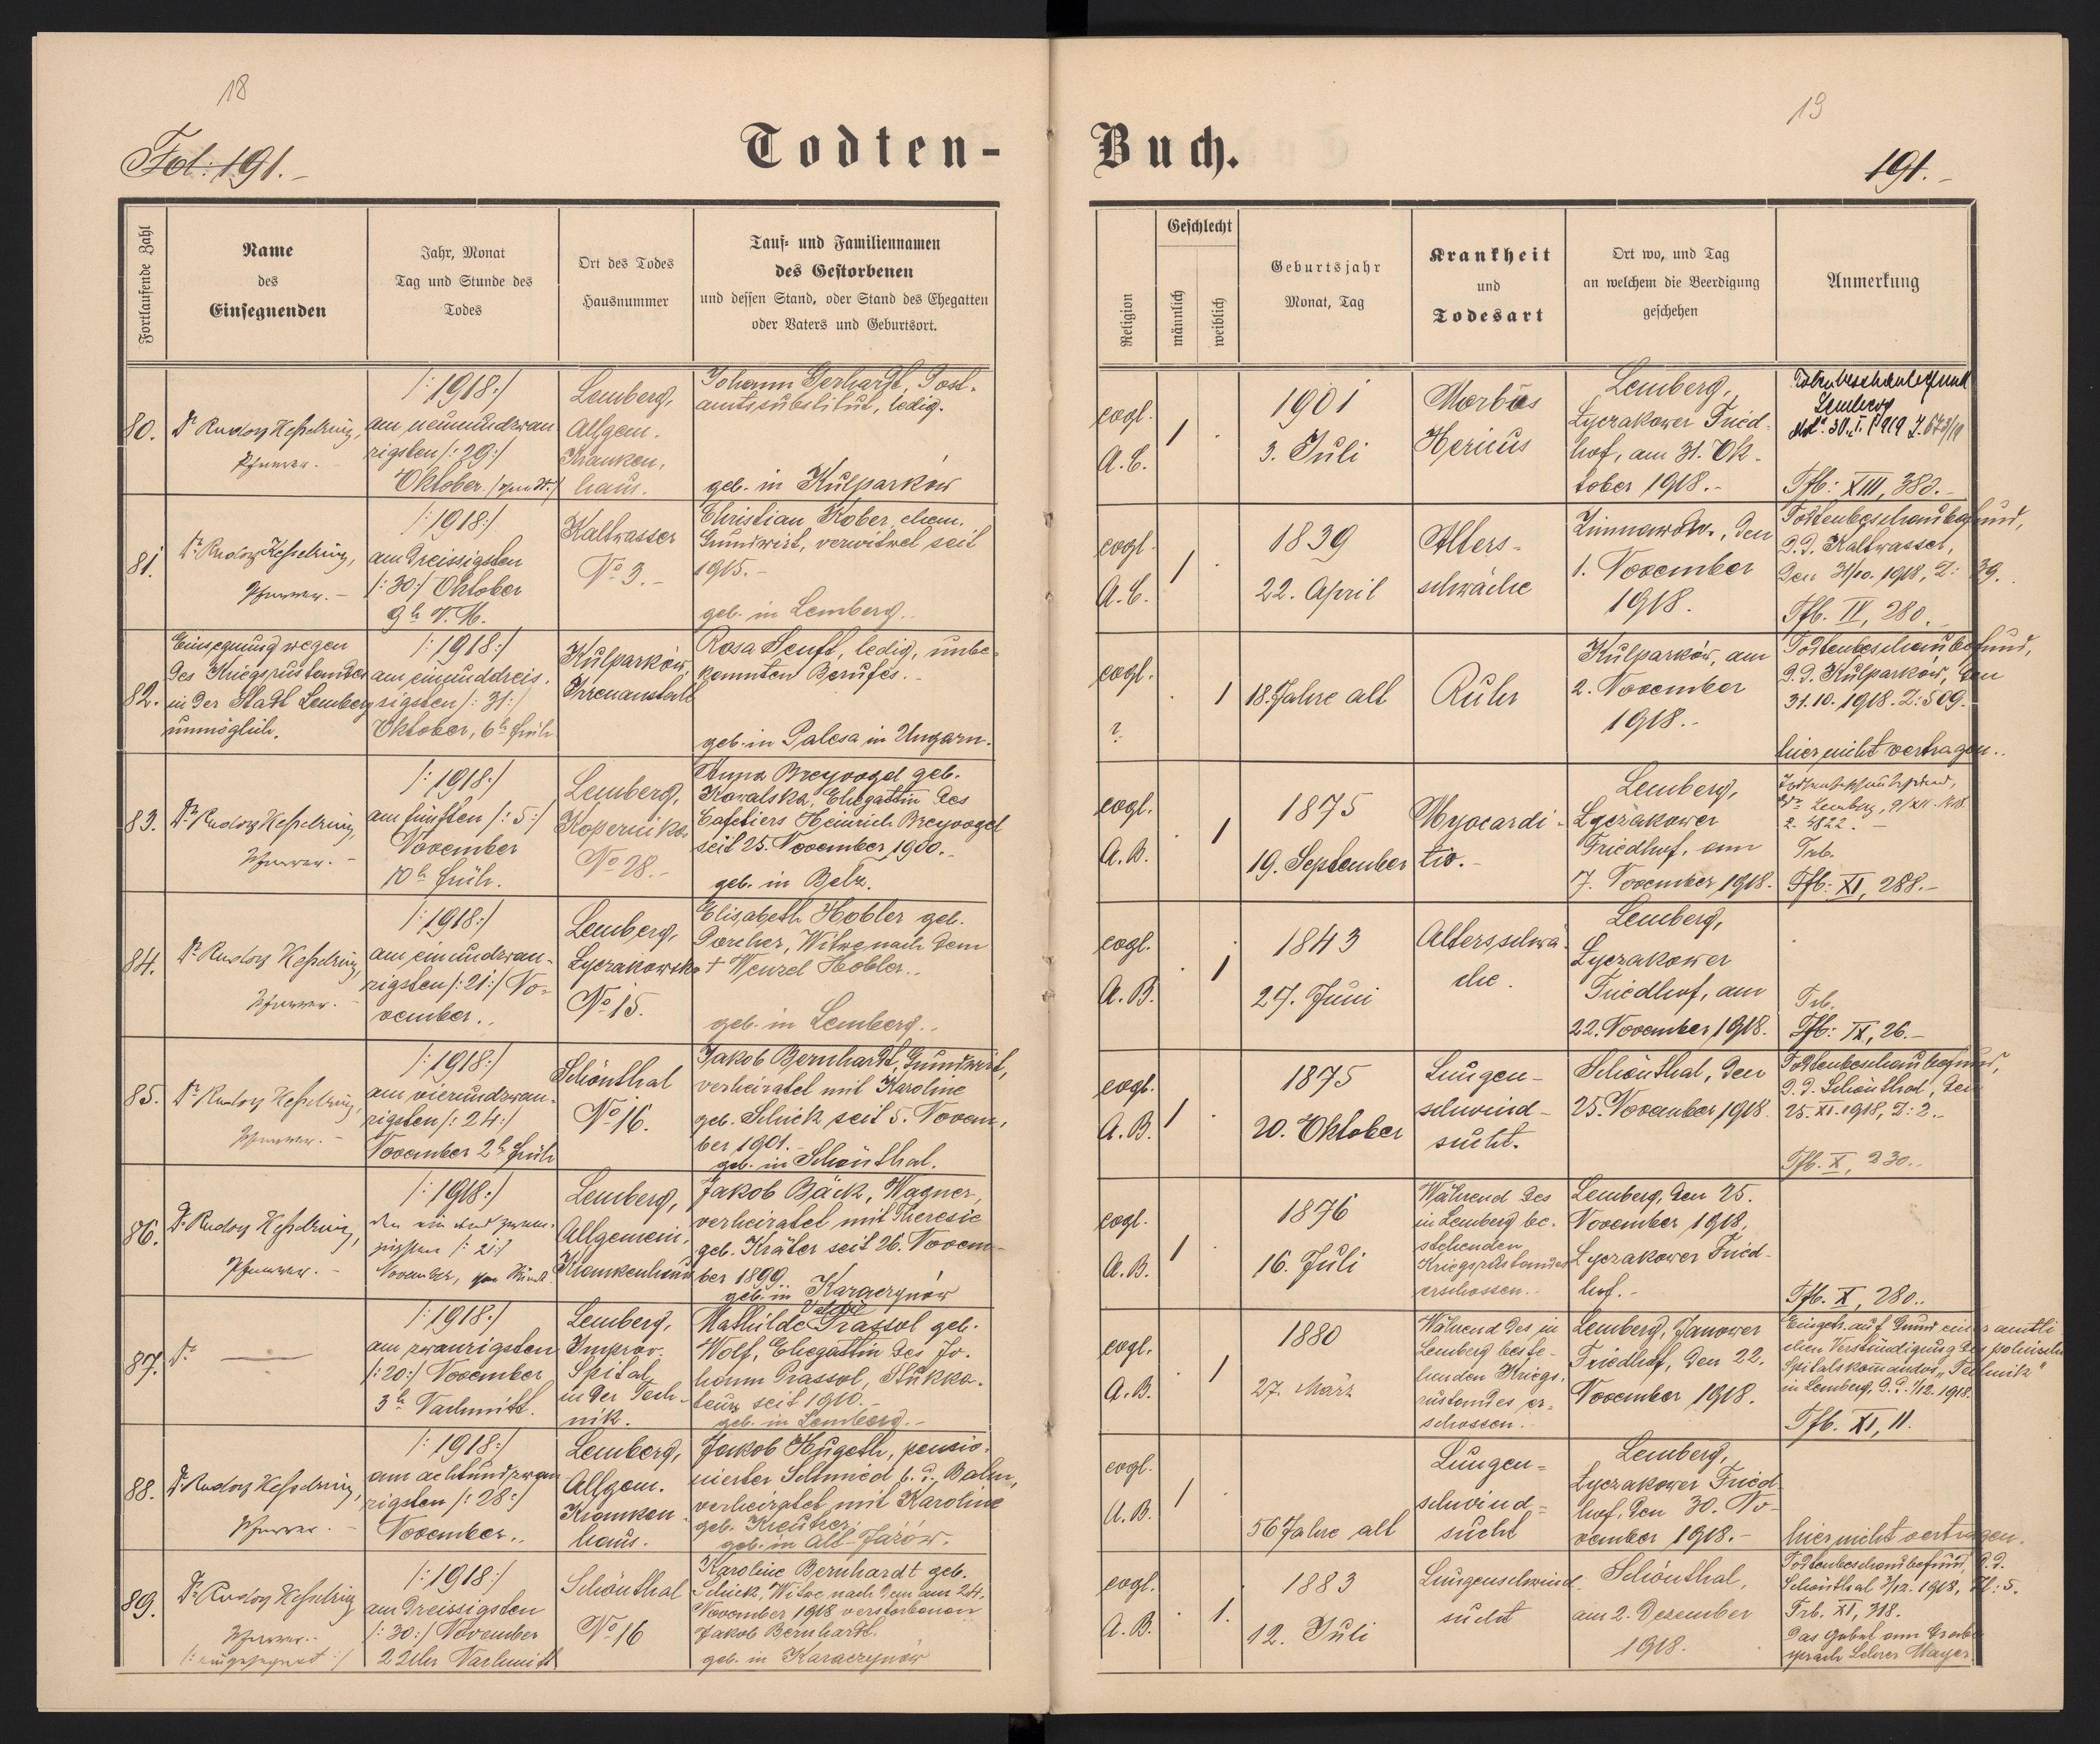 18
Fol: 191.-
Todten-
Fortlaufende Zahl
Name
des
Einsegnenden
Jahr, Monat
Tag und Stunde des
Todes
Ort des Todes
Hausnummer
Tauf- und Familiennamen
des Gestorbenen
und dessen Stand, oder Stand des Ehegatten
oder Vaters und Geburtsort.
80.
Dr Rudolf Kesselring,
Pfarrer.
/:1918:/
am neunundzwan
zigsten /:29:/
Oktober.
Lemberg,
Allgem.
Kranken,
haus.
Johann Gerhardt, Post-
amtssubstitut, ledig.
geb. in Kulparków
81.
Dr Rudolf Kesselring,
Pfarrer.-
/:1918:/
am dreissigsten
/:30:/ Oktober
9h V.M.
Kaltwasser
No 3.-
Christian Kober, ehem.
Grundwirt, verwitwet seit
1915.-
geb. in Lemberg..
82.
Einsegnung wegen
des Kriegszustandes
in der Stadt Lemberg
unmöglich.
/:1918:/
am einunddreis-
sigsten /:31:/
Oktober, 6h früh
Kulparków
Irrenanstalt
Rosa Senft, ledig, unbe-
kannten Berufes.-
geb. in Palesa in Ungarn.
83.
Dr Rudolf Kesselring,
Pfarrer.-
/:1918:/
am fünften /:5:/
November
10h früh.
Lemberg,
Kopernika
No 28.-
Anna Breyvogel geb.
Kowalska, Ehegattin des
Cafetiers Heinrich Breyvogel
seit 25. November 1900.-
geb. in Belz.
84.
Dr Rudolf Kesselring,
Pfarrer.-
/:1918:/
am einundzwan-
zigsten /:21:/ No-
vember..
Lemberg,
Lyczakowska
No 15.
Elisabeth Hobler geb.
Porcher, Witwe nach dem
+ Wenzel Hobler..
geb. in Lemberg..
85.
Dr Rudolf Kesselring,
Pfarrer.-
/:1918:/
am vierundzwan-
zigsten /:24:/
November 2h früh
Schönthal
No 16.
Jakob Bernhardt, Grundwirt,
verheiratet mit Karoline
geb. Schick seit 5. Novem,
ber 1901.-
geb. in Schönthal.
86.
Dr Rudolf Kesselring,
Pfarrer.-
/:1918:/
den ein und zwan-
zigsten /:21:/
November,
Lemberg,
Allgemein.
Krankenhaus
Jakob Bäck, Wagner,
verheiratet mit Theresie
geb. Kräter seit 26. Novem-
ber 1899..
geb. in Karaczynów
87.
Dr —
/:1918:/
am zwanzigsten
/:20:/ November
3h Nachmitt.
Lemberg,
Improv.
Spital
in der Tech-
nik.
Mathilde Prassol geb.
Wolf, Ehegattin des Jo-
hann Prassol, Stukka-
teurs seit 1910.-
geb. in Lemberg.-
88.
Dr Rudolf Kesselring,
Pfarrer.-
/:1918:/
am achtundzwan
zigsten /:28:/
November..
Lemberg,
Allgem.
Kranken
haus.
Jakob Hugeth, pensio-
nierter Schmied b. d. Bahn,
verheiratet mit Karoline
geb. Kreutzer.
geb. in Alt-Jazów.
89.
Dr Rudolf Kesselring
Pfarrer.-
/:eingesegnet:/
/:1918:/
am dreissigsten
/:30:/ November
2 Uhr Nachmitt
Schönthal
No 16
Karoline Bernhardt geb.
Schick, Witwe nach dem am 24.
November 1918 verstorbenen
Jakob Bernhardt.
geb. in Karaczynów
19
Buch.
191.-
Religion
Geschlecht
männlich
weiblich
Geburtsjahr
Monat, Tag
Krankheit
und
Todesart
Ort wo, und Tag
an welchem die Beerdigung
geschehen
Anmerkung
evgl.
A.C.
1
1901
3. Juli
Morbus
Lemberg,
Lyczakower Fried-
hof, am 31. Ok-
tober 1918.-
Totenbeschaubefund
Lemberg
Tfb: XIII, 382.-
evgl.
A.C.
1
1839
22. April
Alters-
schwäche
Zimnawoda, den
1. November
1918.
Todtenbeschaubefund,
d.d. Kaltwasser,
den 31/10. 1918, Z: 39.
Tfb. IV, 280.
evgl.
?
1
18 Jahre alt
Ruhr
Kulparków, am
2. November
1918.-
Todtenbeschaubefund,
d.d. Kulparków, den
31.10.1918. Z: 509.
hier nicht vertragen..
evgl.
A.B.
1
1875
19. September
Myocardi-
tis.-
Lemberg,
Lyczakower
Friedhof, am
7. November 1918.
Z. 4822.-
Trb.
Tfb: XI, 288.-
evgl.
A.B.
1
1843
27. Juni
Altersschwä-
che.
Lemberg,
Lyczakower
Friedhof, am
22. November 1918.
Trb.
Tfb: IX, 26.-
evgl.
A.B.
1
1875
20. Oktober
Lungen-
schwind-
sucht.
Schönthal, den
25. November 1918.
Todtenbeschaubefund,
d.d. Schönthal, den
25. XI. 1918, Z: 2.-
Tfb. X, 230..
evgl.
A.B.
1
1876
16. Juli
Während des
in Lemberg be-
stehenden
Kriegszustandes
erschossen.-
Lemberg, den 25.
November 1918,
Lyczakower Fried-
hof.-
Tfb. X, 280..
evgl.
A.B.
1
1880
27. März
Während des in
Lemberg beste-
henden Kriegs-
zustandes er-
schossen.-
Lemberg, Janower
Friedhof, den 22.
November 1918.
Eingetr. auf Grund einer amtli
chen Verständigung des polnischen
Spitalskommandos „Technika"
in Lemberg, d.d. 1/12.1918.
Tfb. XI, 11.
evgl.
A.B.
1
56 Jahre alt
Lungen-
schwind-
sucht
Lemberg,
Lyczakower Fried
hof, den 30. No-
vember 1918.-
hier nicht vertragen.
evgl.
A.B.
1.
1883
12. Juli
Lungenschwind-
sucht
Schönthal,
am 2. Dezember
1918.
Todtenbeschaubefund, d.d.
Schönthal 2/12. 1918, Zl: 5.
Trb. XI, 318.
Das Gebet am Grabe
sprach Lehrer Mayer